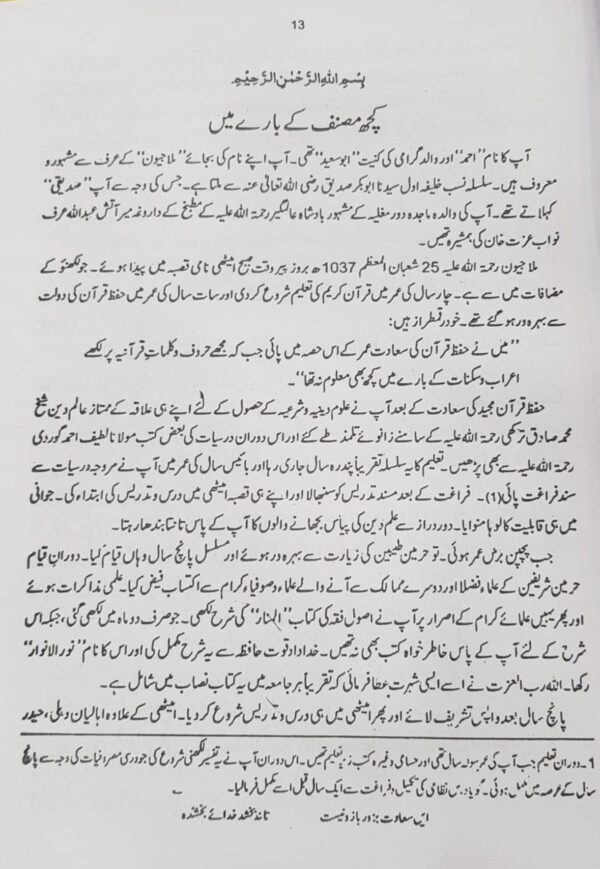 13
بِسْمِ اللهِ الرَّحْمٰنِ الرَّحِيْمِ
کچھ مصنف کے بارے میں
آپ کا نام "احمد" اور والد گرامی کی کنیت "ابو سعید" تھی۔ آپ اپنے نام کی بجائے "ملا جیون" کے عرف سے مشہور و
معروف ہیں۔ سلسلہ نسب خلیفہ اول سیدنا ابوبکر صدیق رضی اللہ تعالیٰ عنہ سے ملتا ہے۔ جس کی وجہ سے آپ "صدیقی"
کہلاتے تھے۔ آپ کی والدہ ماجدہ دور مغلیہ کے مشہور بادشاہ عالمگیر رحمۃ اللہ علیہ کے مطبخ کے داروغہ میر آتش عبداللہ عرف
نواب عزت خان کی ہمشیرہ تھیں۔
ملا جیون رحمۃ اللہ علیہ 25 شعبان المعظم 1037ھ بروز پیر وقت صبح امیٹھی نامی قصبہ میں پیدا ہوئے۔ جو لکھنؤ کے
مضافات میں سے ہے۔ چار سال کی عمر میں قرآن کریم کی تعلیم شروع کر دی اور سات سال کی عمر میں حفظ قرآن کی دولت
سے بہرہ ور ہو گئے تھے۔ خود رقمطراز ہیں:
"میں نے حفظ قرآن کی سعادت عمر کے اس حصہ میں پائی جب کہ مجھے حروف و کلمات قرآنیہ پر لکھے
اعراب و سکنات کے بارے میں کچھ بھی معلوم نہ تھا"۔
حفظ قرآن مجید کی سعادت کے بعد آپ نے علوم دینیہ و شرعیہ کے حصول کے لئے اپنے ہی علاقہ کے ممتاز عالم دین شیخ
محمد صادق ترکھی رحمۃ اللہ علیہ کے سامنے زانوئے تلمذ طے کئے اور اس دوران درسیات کی بعض کتب مولانا لطیف احمد گوردی
رحمۃ اللہ علیہ سے بھی پڑھیں۔ تعلیم کا یہ سلسلہ تقریباً پندرہ سال جاری رہا اور بائیس سال کی عمر میں آپ نے مروجہ درسیات سے
سند فراغت پائی(1)۔ فراغت کے بعد مسند تدریس کو سنبھالا اور اپنے ہی قصبہ امیٹھی میں درس و تدریس کی ابتداء کی۔ جوانی
میں ہی قابلیت کا لوہا منوایا۔ دور دراز سے علم دین کی پیاس بجھانے والوں کا آپ کے پاس تانتا بندھا رہتا۔
جب پچپن برس عمر ہوئی۔ تو حرمین طیبین کی زیارت سے بہرہ ور ہوئے اور مسلسل پانچ سال وہاں قیام کیا۔ دوران قیام
حرمین شریفین کے علماء فضلا اور دوسرے ممالک سے آنے والے علماء و صوفیاء کرام سے اکتساب فیض کیا۔ علمی مذاکرات ہوئے
اور پھر یہیں علمائے کرام کے اصرار پر آپ نے اصول فقہ کی کتاب "المنار" کی شرح لکھی۔ جو صرف دو ماہ میں لکھی گئی، جبکہ اس
شرح کے لئے آپ کے پاس خاطر خواہ کتب بھی نہ تھیں۔ خداداد قوت حافظہ سے یہ شرح مکمل کی اور اس کا نام "نور الانوار"
رکھا۔ اللہ رب العزت نے اسے ایسی شہرت عطا فرمائی کہ تقریباً ہر جامعہ میں یہ کتاب نصاب میں شامل ہے۔
پانچ سال بعد واپس تشریف لائے اور پھر امیٹھی میں ہی درس و تدریس شروع کر دیا۔ امیٹھی کے علاوہ اہالیان دہلی، حیدر
1۔ دوران تعلیم جب آپ کی عمر سولہ سال تھی اور حسامی وغیرہ کتب زیر تعلیم تھیں۔ اس دوران آپ نے یہ تفسیر لکھنی شروع کی جو دری مصروفیات کی وجہ سے پانچ
سال کے عرصہ میں مکمل ہوئی۔ گویا درس نظامی کی تکمیل و فراغت سے ایک سال قبل اسے مکمل فرمالیا۔
ایں سعادت بزور بازو نیست تا نہ بخشد خدائے بخشندہ